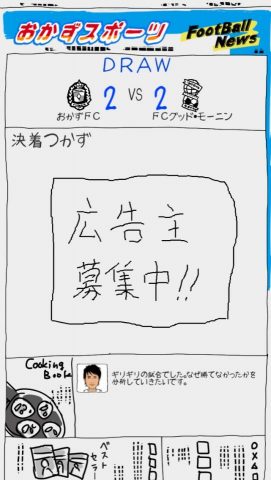 おかずスポーツ
FootBall
News
DRAW
2 VS 2
おかずFC
FCグッド・モーニン
決着つかず
広告主
募集中!!
Cooking
Book
ギリギリの試合でした。なぜ勝てなかったかを
分析していきたいです。
ベスト
セラー